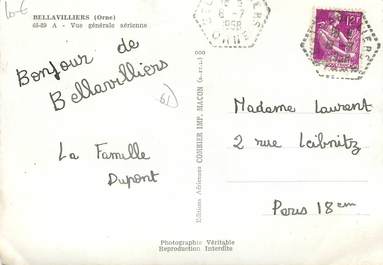 10-€
BELLAVILLIERS (Orne)
46-89 A - Vue générale aérienne
Bonjour de
Bellavilliers
61)
La Famille
Dupont
Editions Aériennes COMBIER IMP. MACON (S.-et-L.)
Madame Laurent
2 rue Leibnitz
Paris 18em
Photographie Véritable
Reproduction Interdite
12F
ORNE